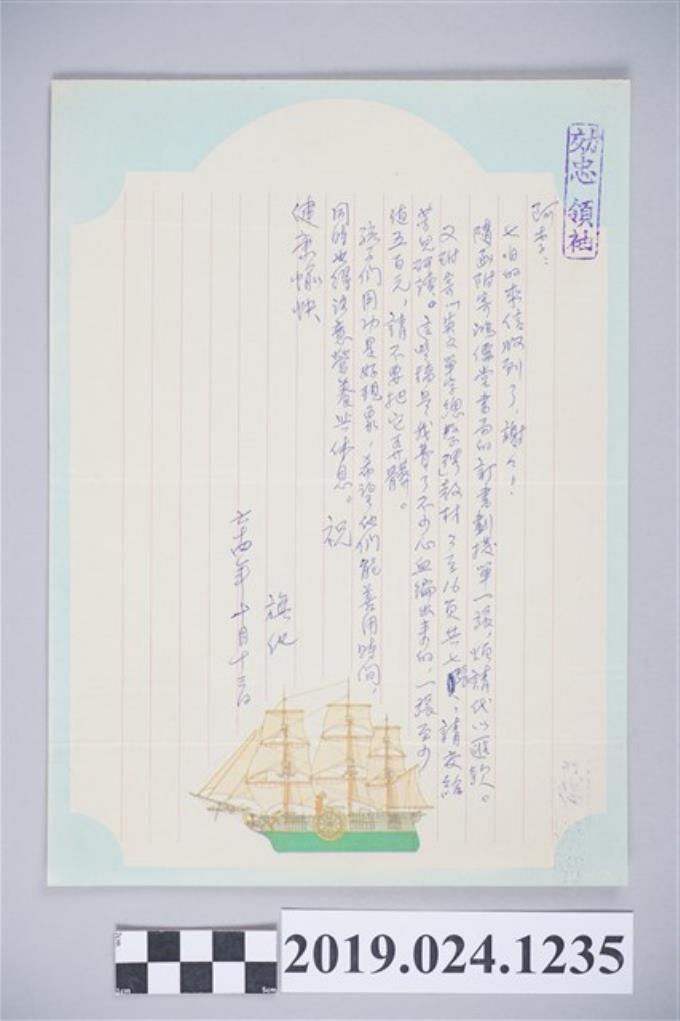 効忠領袖
阿李:
七日的來信收到了,謝々!
隨函附寄鴻儒堂書局的訂書劃撥單一張,煩請代以匯款。
又附寄「英文單字總整理」教材3至16頁共七張,請交給
芳兒研讀。這些稿是我費了不少心血編出來的,一張至少
值五百元,請不要把它弄髒。
孩子們用功是好現象,希望他們能善用時間,
同時也得注意營養與休息。 祝
健康愉快
旗化
七十四年十月十三日
2019.024.1235